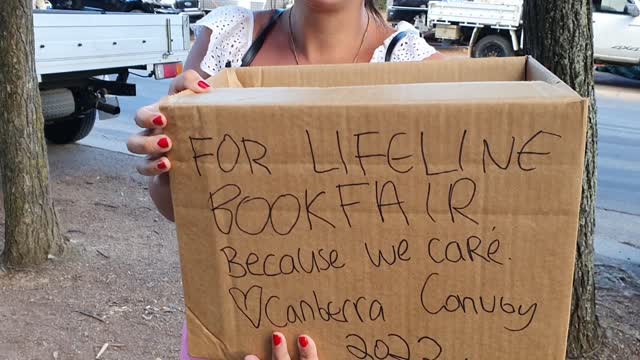 FOR LIFELINE
BOOKFAIR
Because we care.
♡Canberra Convoy
2022